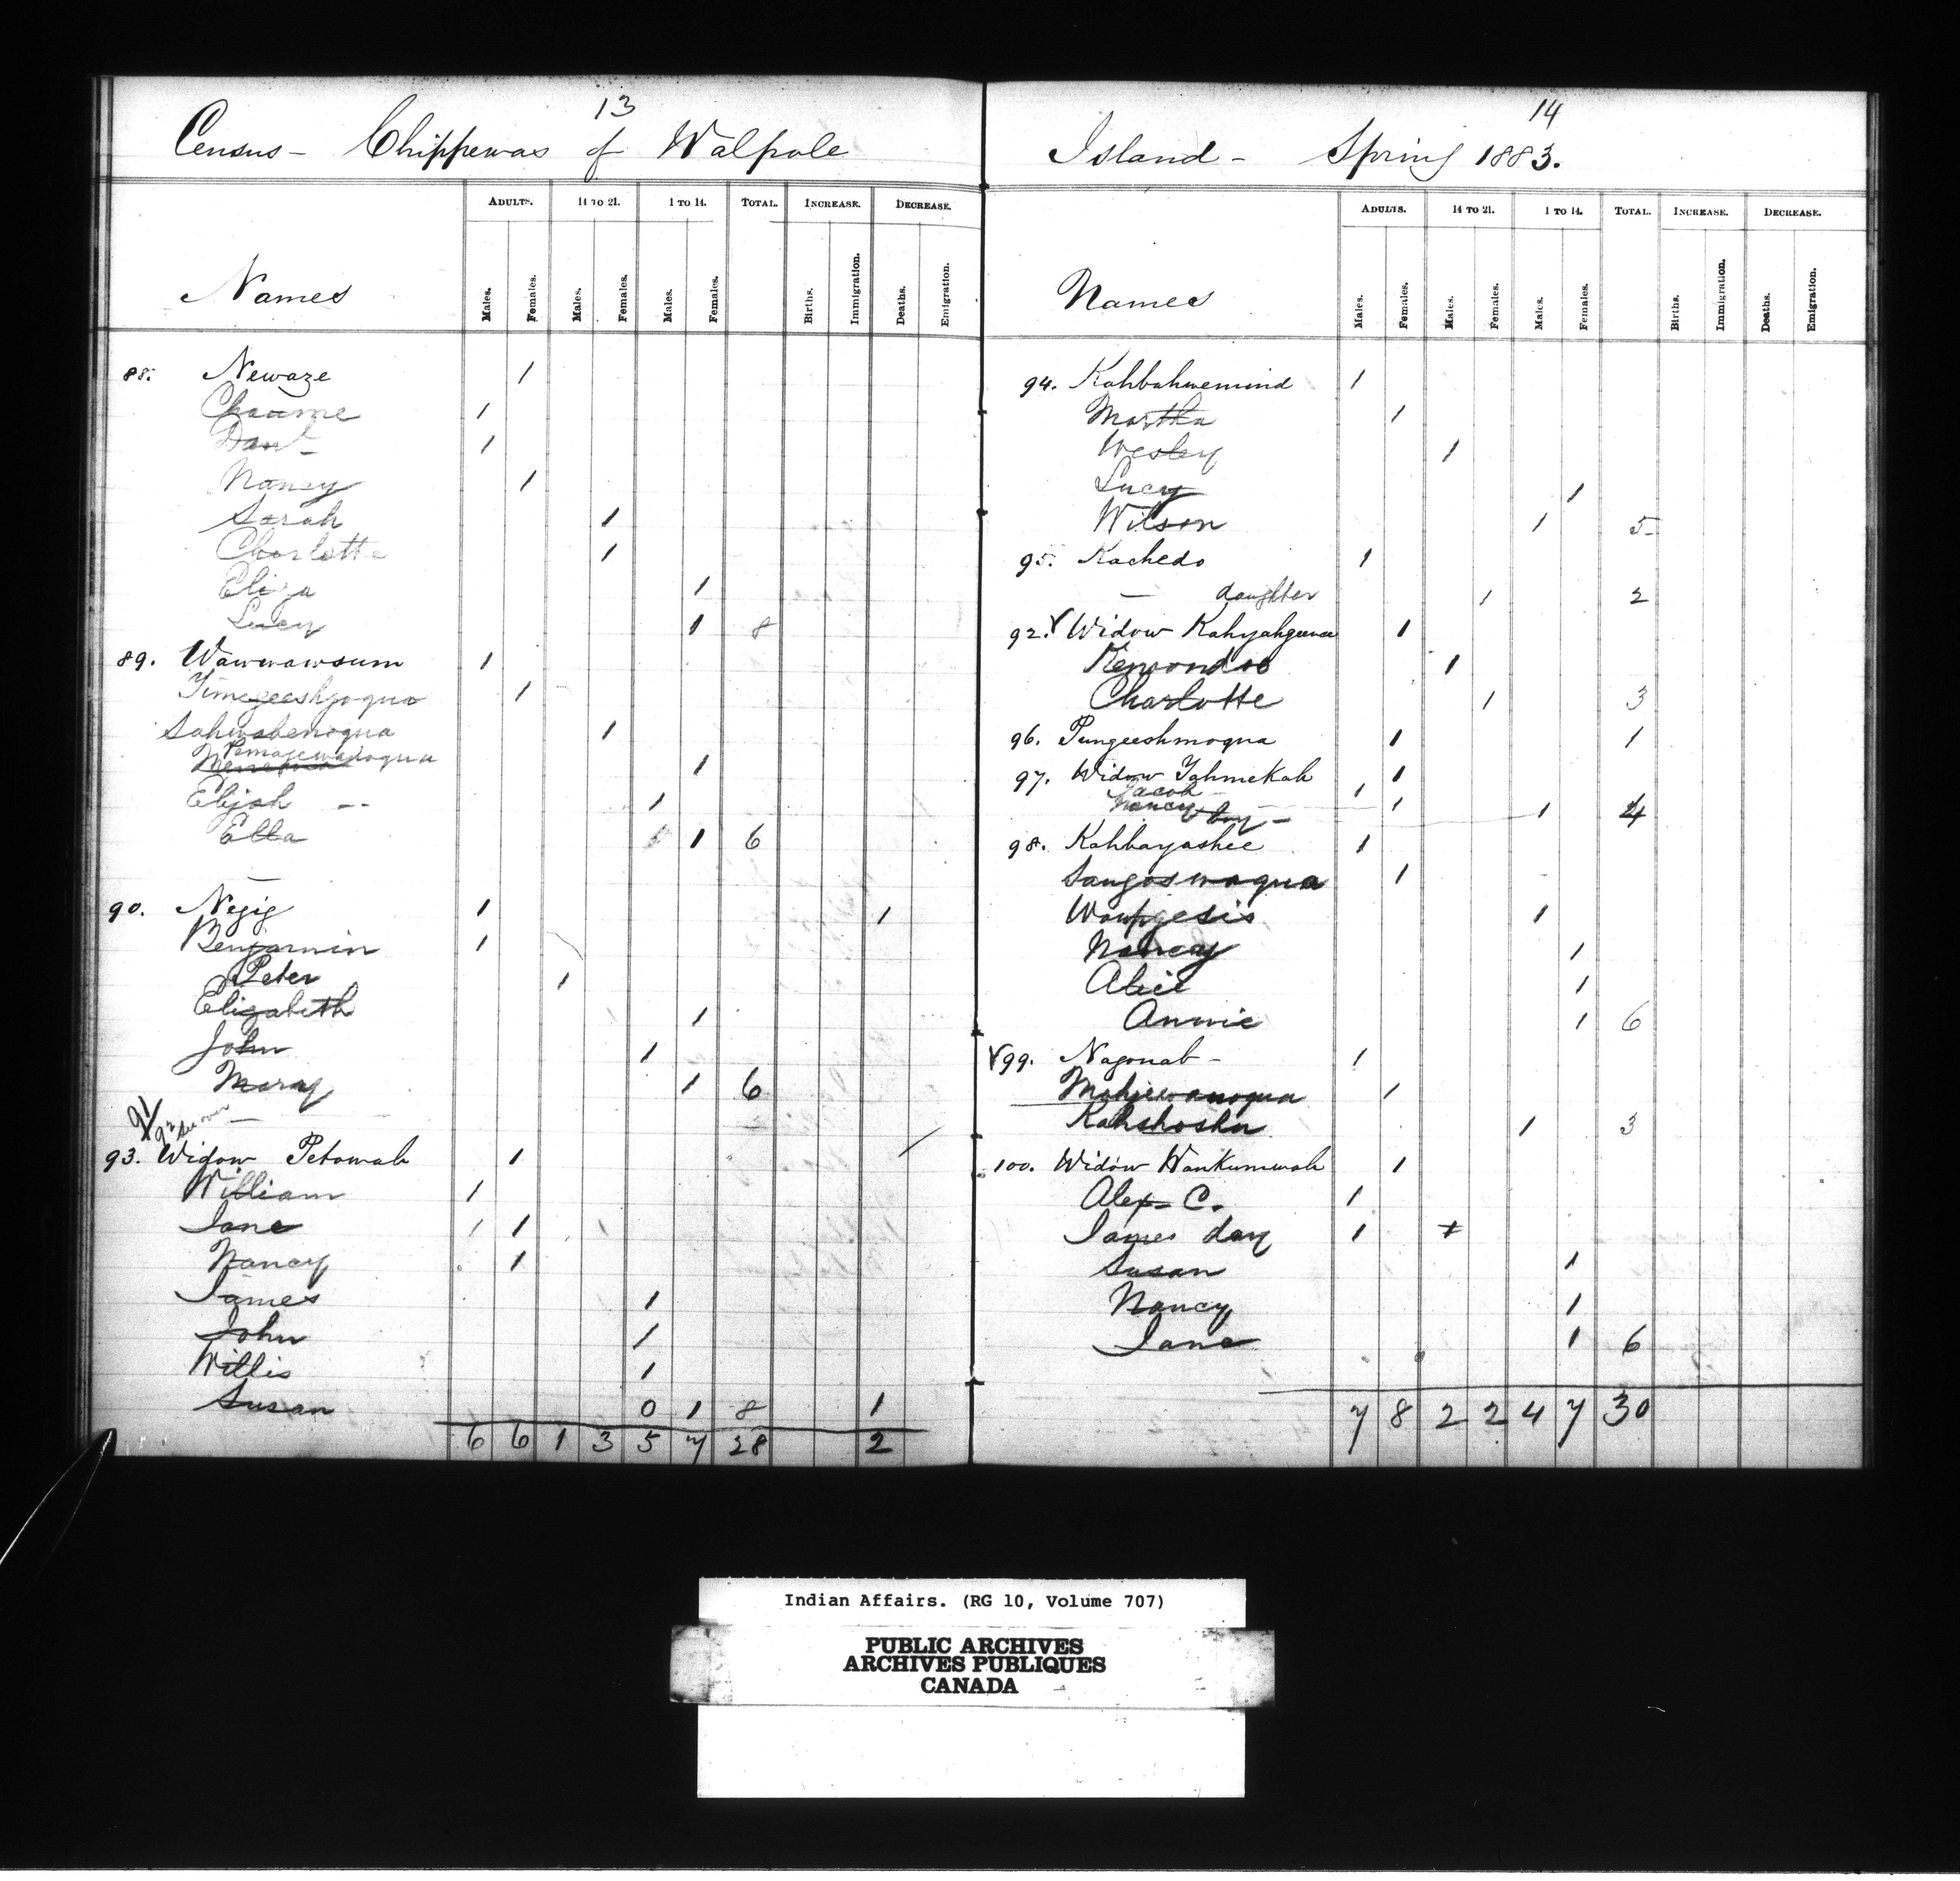 13
Census - Chippewas of Walpole
ADULTS. 14 TO 21. 1 TO 14. TOTAL. INCREASE. DECREASE.
Names Males. Females. Males. Females. Males. Females. Births. Immigration. Deaths. Emigration.
88. Newaze 1
Chaume 1
Danl - 1
Nancy 1
Sarah 1
Charlotte 1
Eliza 1
Lucy 1 8
89. Wawwawsum 1
Timegeeshgoqua 1
Sahwabenoqua 1
Pemasewanoqua 1
Elijah -- 1
Ella 1 6
90. Negig 1 1
Benjamin 1
Peter 1
Elizabeth 1
John 1
Mary 1 6
91
92 see over
93. Widow Petowah 1
William 1
Jane 1 1 1
Nancy 1
James 1
John 1
Willis 1
Susan 0 1 8 1
6 6 1 3 5 7 28 2
14
Island - Spring 1883.
ADULTS. 14 TO 21. 1 TO 14. TOTAL. INCREASE. DECREASE.
Names Males. Females. Males. Females. Males. Females. Births. Immigration. Deaths. Emigration.
94. Kahbahwemind 1
Martha 1
Wesley 1
Lucy 1
Wilson 1 5
95. Kachedo 1
— daughter 1 2
92. Widow 1
Kewondoe 1
Charlotte 1 3
96. Pungeeshmoqua 1 1
97. Widow Tahmekah 1
Jacob - 1
Nancy 1
boy - 1 4
98. Kahbayashee 1
Saugoswaqua 1
Waupgesis 1
Nancy 1
Alice 1
Annie 1 6
99. Nagonab - 1
Mahjewanoqua 1
Kahshoshu 1 3
100. Widow Wankumwah 1
Alex C. 1
James day 1 +
Susan 1
Nancy 1
Jane 1 6
7 8 2 2 4 7 30
Indian Affairs. (RG 10, Volume 707)
PUBLIC ARCHIVES
ARCHIVES PUBLIQUES
CANADA